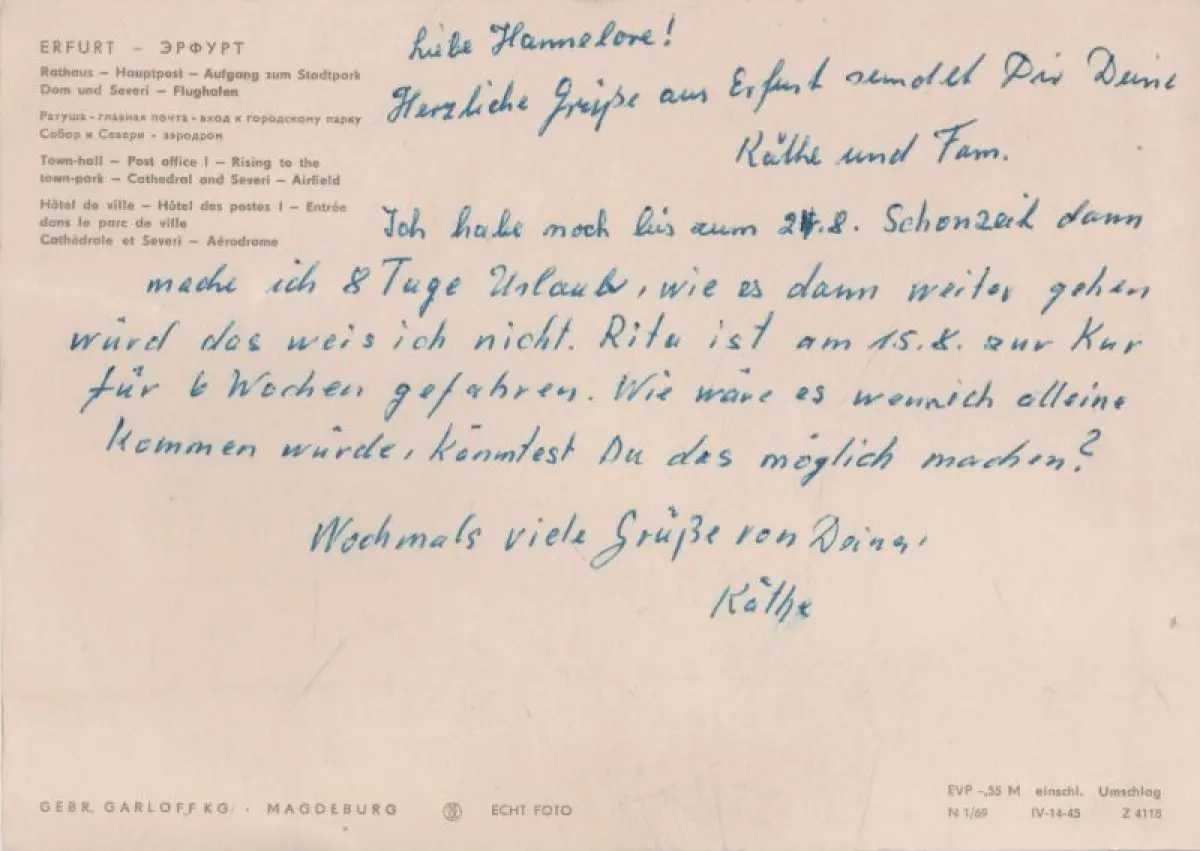 ERFURT – ЭРФУРТ
Rathaus – Hauptpost – Aufgang zum Stadtpark
Dom und Severi – Flughafen
Ратуша - главная почта - вход к городскому парку
Собор и Севери - аэродром
Town-hall – Post office I – Rising to the
town-park – Cathedral and Severi – Airfield
Hôtel de ville – Hôtel des postes I – Entrée
dans le parc de ville
Cathédrale et Severi – Aérodrome
Liebe Hannelore!
Herzliche Grüße aus Erfurt sendet Dir Deine
Käthe und Fam.
Ich habe noch bis zum 8. Schonzeit dann
mache ich 8 Tage Urlaub, wie es dann weiter gehen
würd das weis ich nicht. Rita ist am 15.8. zur Kur
für 6 Wochen gefahren. Wie wäre es wenn ich alleine
kommen würde, könntest Du das möglich machen?
Nochmals viele Grüße von Deiner
Käthe
GEBR. GARLOFF KG · MAGDEBURG ECHT FOTO
EVP -,55 M einschl. Umschlag
N 1/69 IV-14-45 Z 4118